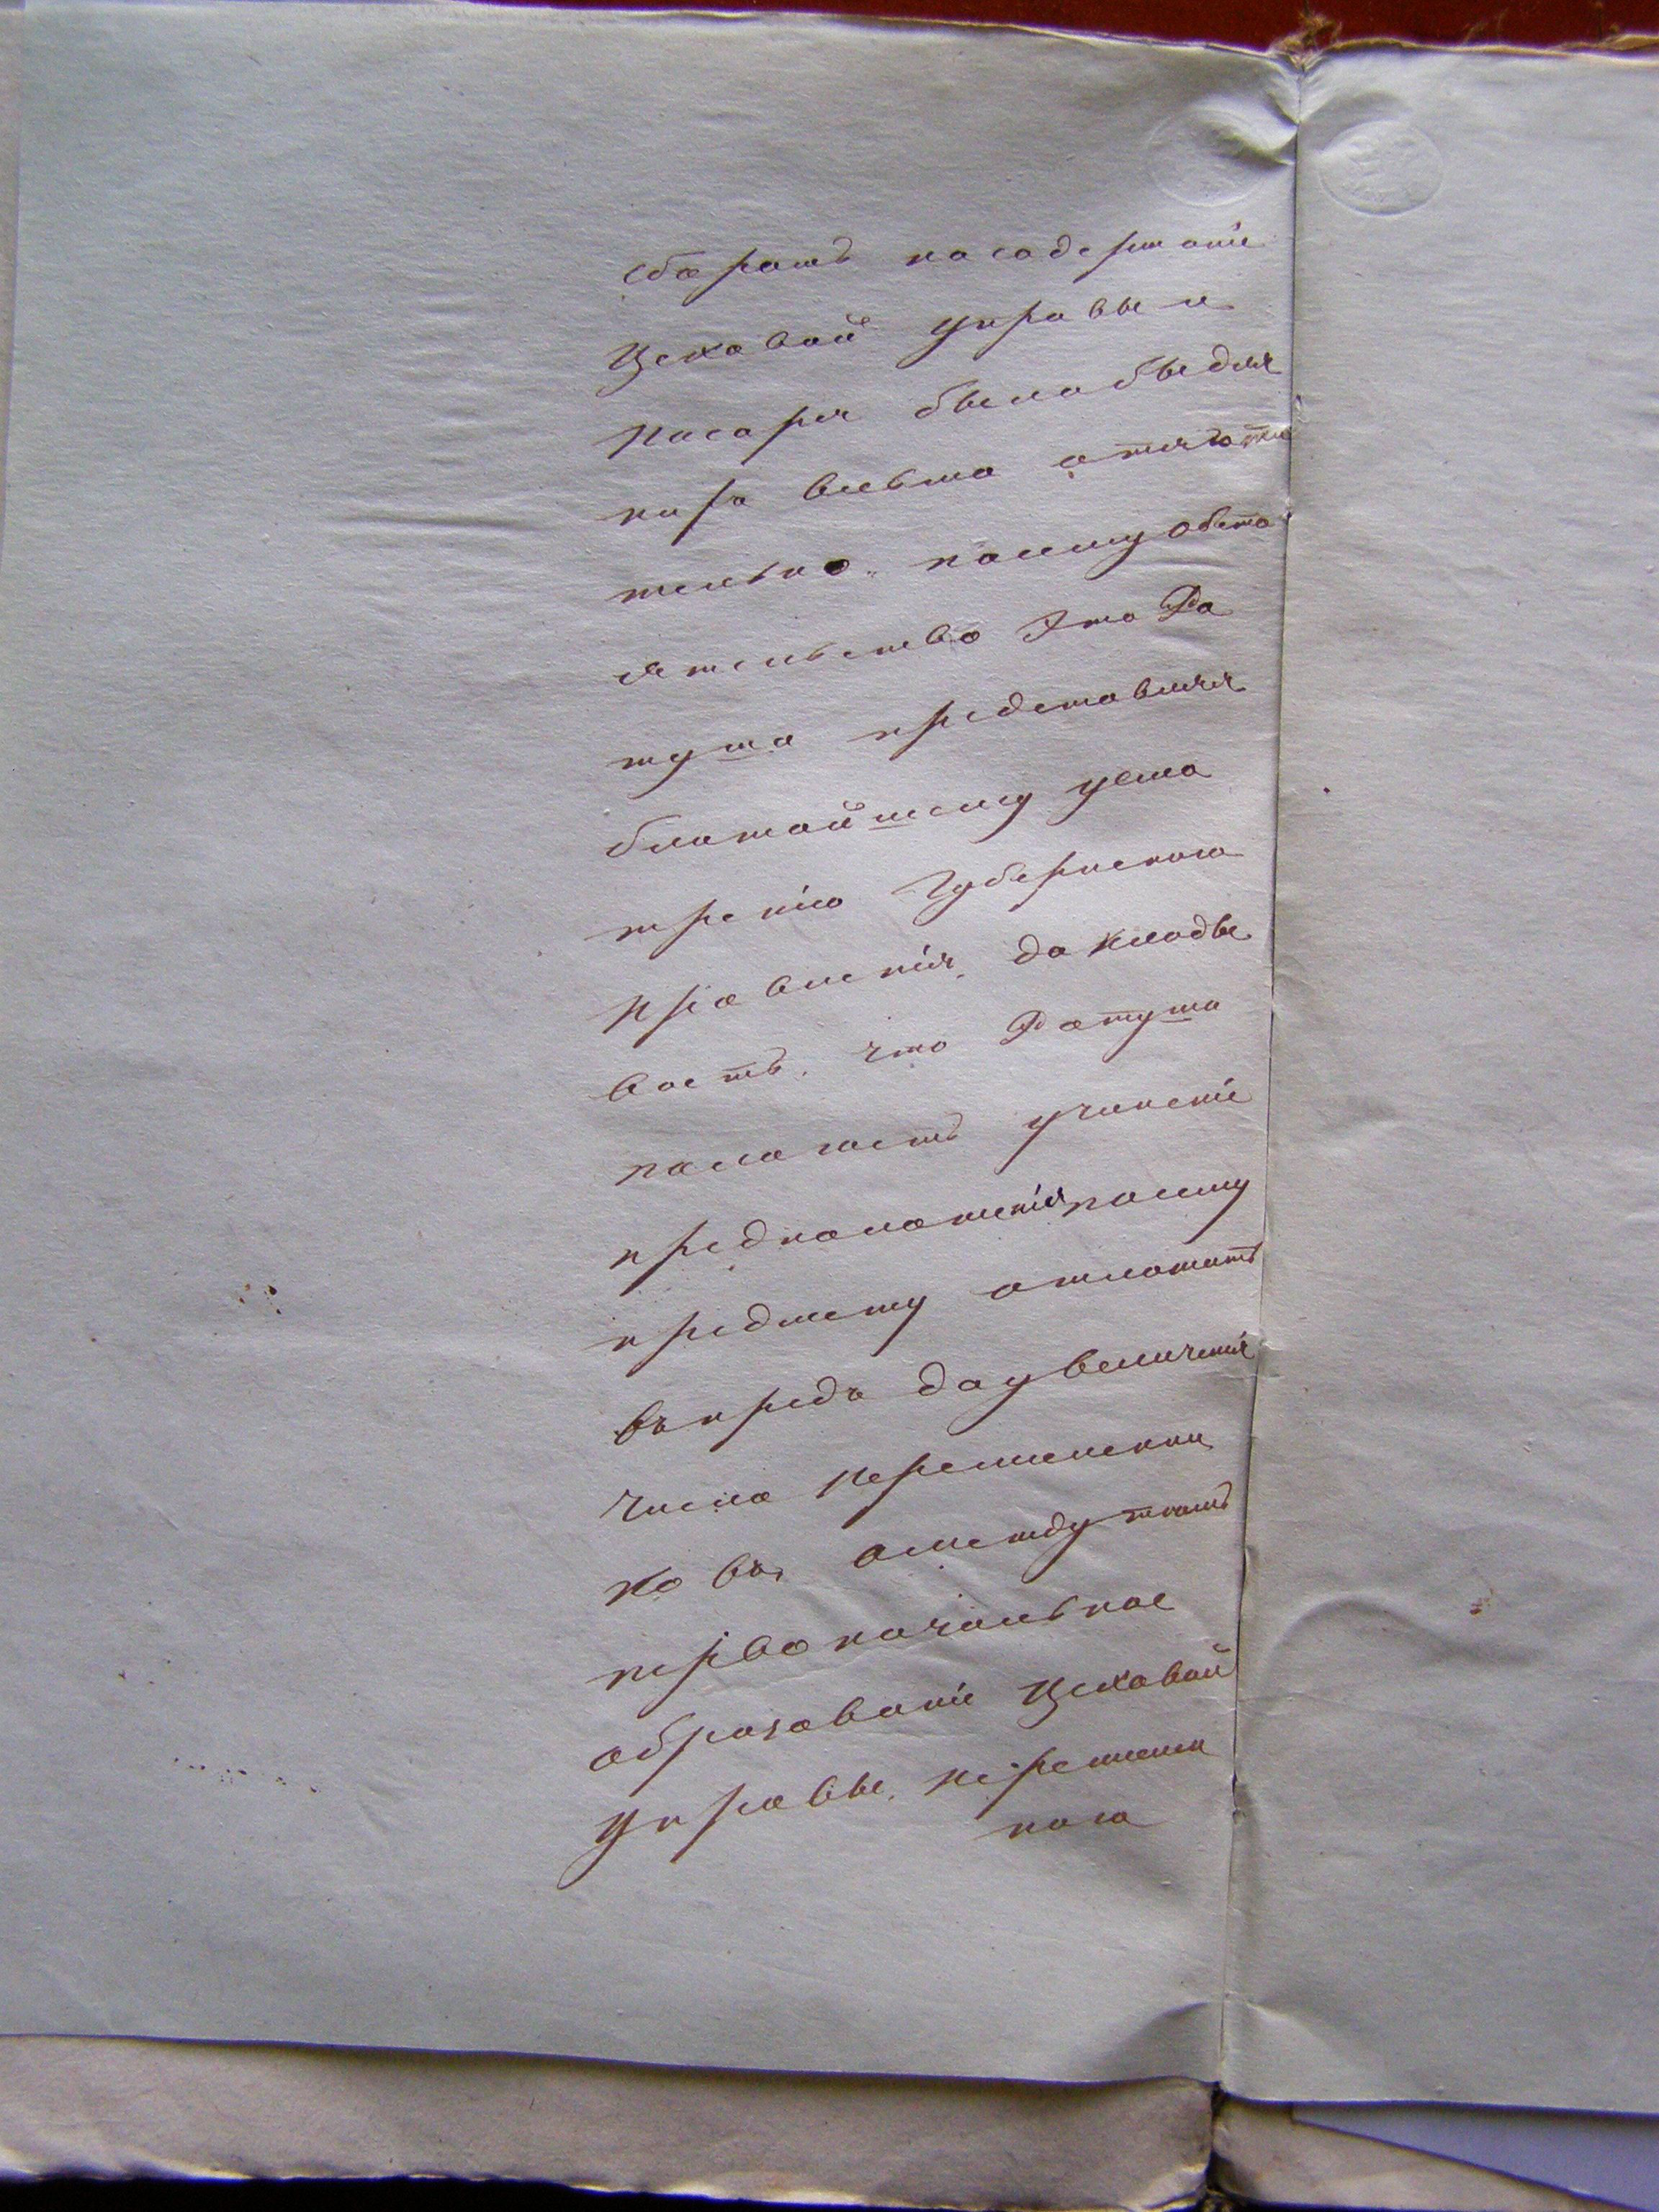 сборомъ на содержаніе
Цеховой управы и
писаря было бы для
нихъ весьма отяготи
тельно. почему обсто
ятельство это Ра
туша представляя
ближайшему усмо
трѣнію Губернскаго
правленія, доклады
ваетъ, что Ратуша
полагаетъ учиненіе
предположенія по сему
предмету отложить
впредь до увеличенія
числа Ремесленни
ковъ,
первоначальное
образованіе Цеховой
управы, Ремеслен
наго